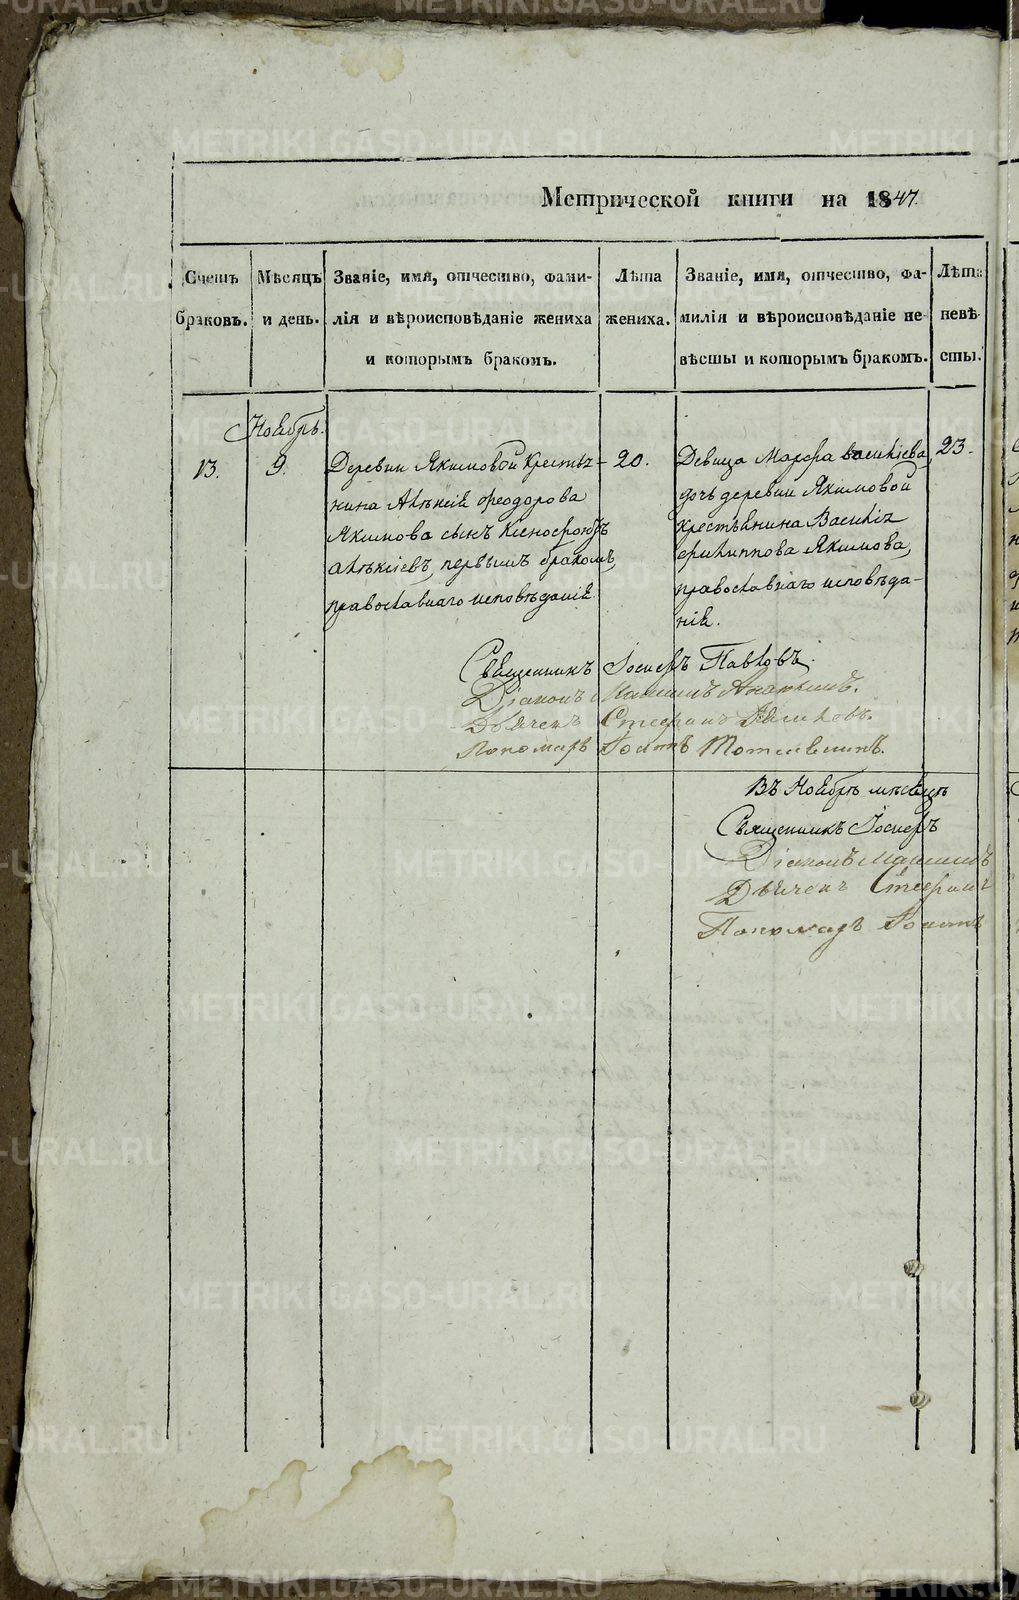 Метрической книги на 1847.
Счетъ браковъ.
Мѣсяцъ и день.
Званіе, имя, отчество, фами-
лія и вѣроисповѣданіе жениха
и которымъ бракомъ.
Лѣта жениха.
Званіе, имя, отчество, фа-
милія и вѣроисповѣданіе не-
вѣсты и которымъ бракомъ.
Лѣта невѣ-
сты.
Ноябрь.
13.
9.
Деревни Якимовой Кресть-
нина Алѣксія Феодорова
Якимова сынъ Ксенофонтъ
Алѣксіевъ, первымъ бракомъ,
православнаго исповѣданія.
20.
Девица Марфа Василіева,
дочь деревни Якимовой
крестьянина Василія
Филиппова Якимова,
православнаго исповѣда-
нія.
23.
Священникъ Іосифъ Павловъ.
Діаконъ Максимъ
Дьячекъ Стефанъ
Пономарь Іоаннъ
Въ Ноябрѣ мѣсяцѣ
Священникъ Іосифъ
Діаконъ Максимъ
Дьячекъ Стефанъ
Пономарь Іоаннъ
METRIKI.GASO-URAL.RU